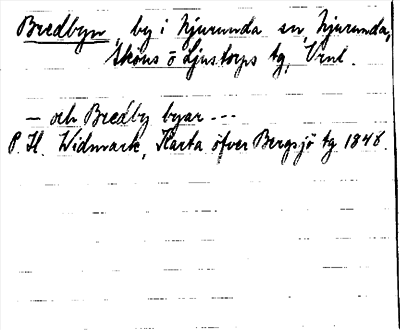 Bredbyn, by i Njurunda sn, Njurunda,
Sköns o Ljustorps tg, Vrnl.
– och Bredby byar ---
P. H. Widmark, Karta öfver Bergsjö tg 1848.